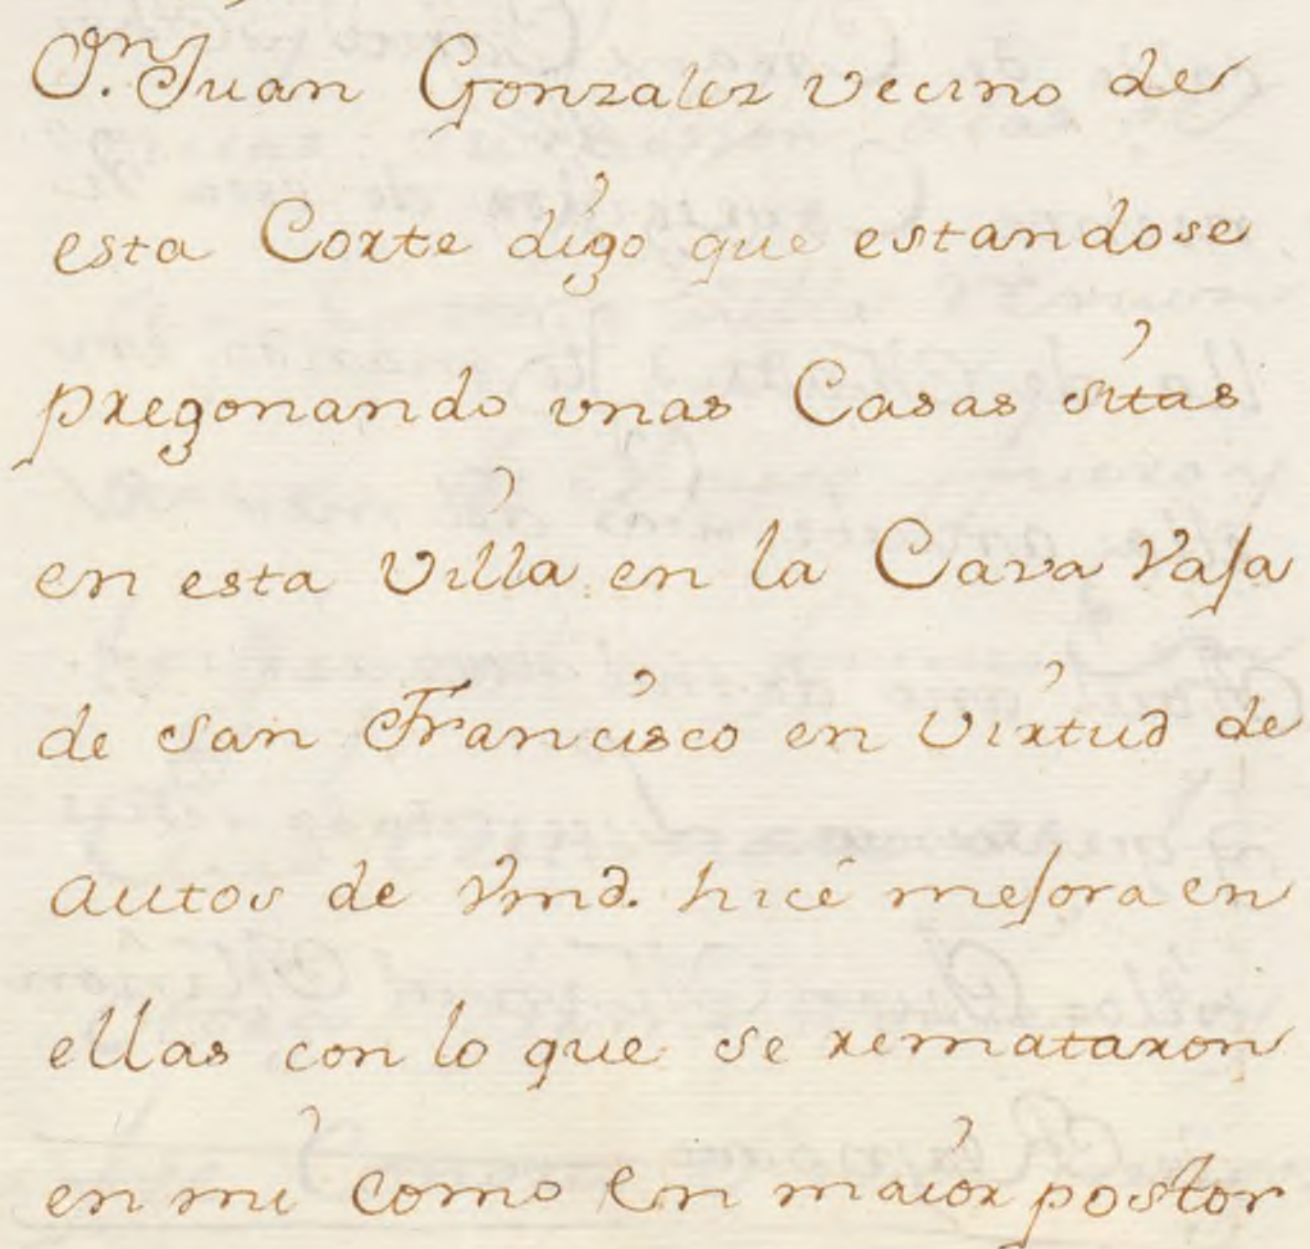 Dn. Juan Gonzalez vecino de
esta Corte digo que estandose
pregonando vnas Casas sitas
en esta Villa en la Cava Vaja
de San Francisco en Virtud de
autos de Vmd. hicé mejora en
ellas con lo que se remataron
en mi como en maior postor